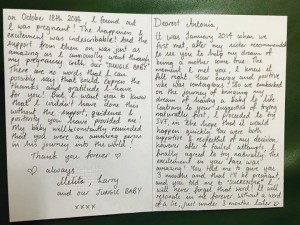 Dearest Antonia,
It was January 2014 when we
first met, after my sister recommended
to see you to help my dream of
being a mother come true. The
moment I met you, I knew it
felt right. Your energy and positive
vibe was contagious. So we embarked
on the journey of bringing my
dream of having a baby to life.
Contrary to your suggestion of trying
naturally first, I proceeded to try
IVF, in the hope that it would
happen quickly. You were both
supportive & respectful of my decision,
however after 4 failed attempts, I
finally agreed to try naturally. The
excitement in your face was
amazing! You told me to give you
3 months and that I'll be pregnant,
and you told me to "believe"... I
will never forget that word! It will
resonate in me forever. Without a word
of a lie, just under 3 months later
on October 18th 2014, I found out
I was pregnant! The happiness &
excitement was indescribable! And the
support from then on was just as
amazing as I continually went through
my pregnancy with our "JUNGLE BABY"
There are no words that I can
possibly say that could express the
thanks and gratitude I have
for you! But I want you to know
that I couldn't have done this
without the support, guidance &
positivity you have provided me.
My baby will constantly reminded
that you were an amazing part of
his journey into the world!
Thank you forever ♡
♡ always
Melita, Larry
and our JUNGLE BABY
x x x x